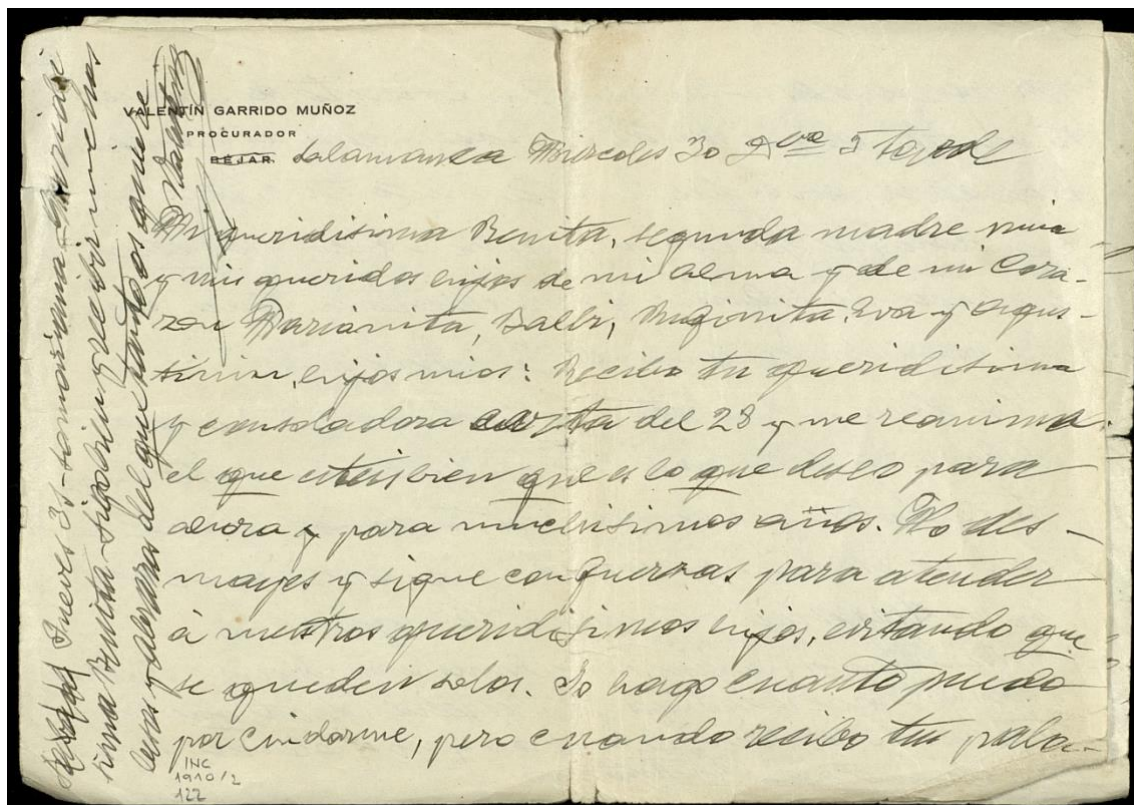 VALENTÍN GARRIDO MUÑOZ
PROCURADOR
BÉJAR
Salamanca Miércoles 30 5 tarde
Mi queridisima Benita, segunda madre mia
y mis queridos hijos de mi alma y de mi Cora-
zon Marianita, Balbi, Eva y Agus-
tinin, hijos mios: Recibo tu queridisima
y consoladora carta del 28 y me reanima
el que esteis bien que es lo que deseo para
ahora y para muchisimos años. No des-
mayes y sigue con fuerzas para atender
á nuestros queridisimos hijos, evitando que
se queden solos. Yo hago cuanto puedo
por cuidarme, pero cuando recibo tu pala-
Jueves 31
sima Benita. Sigo bien y recibir muchos
besos y abrazos del que tanto os quiere
Valentin
INC
1910/2
122